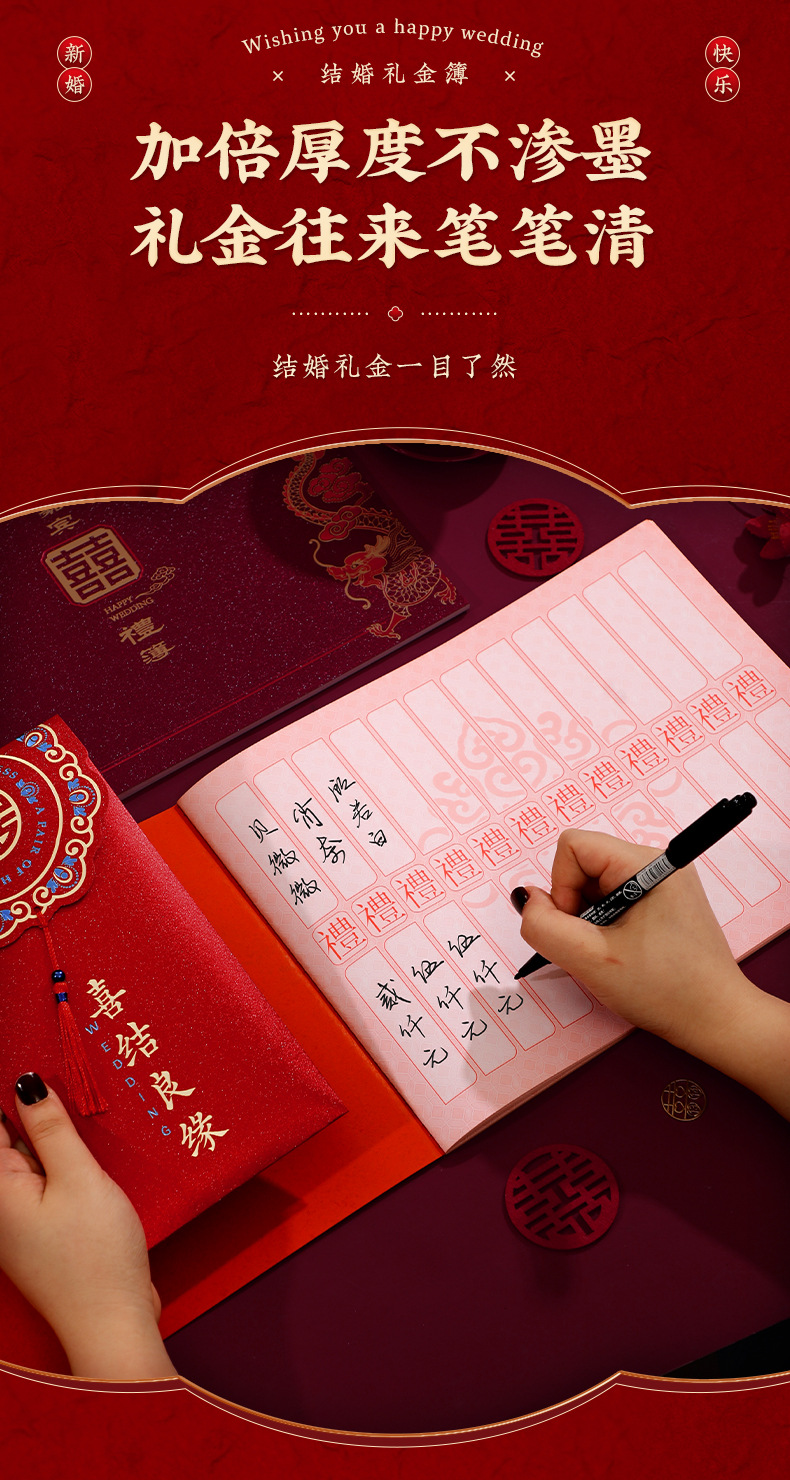 Wishing you a happy wedding
新婚
快乐
结婚礼金簿
加倍厚度不渗墨
礼金往来笔笔清
结婚礼金一目了然
囍
HAPPY
WEDDING
禮簿
A PAIR OF
喜结良缘
WEDDING
贝微微
肖奈
禮禮禮禮禮禮禮禮禮禮禮禮
贰仟元
伍仟元
伍仟元